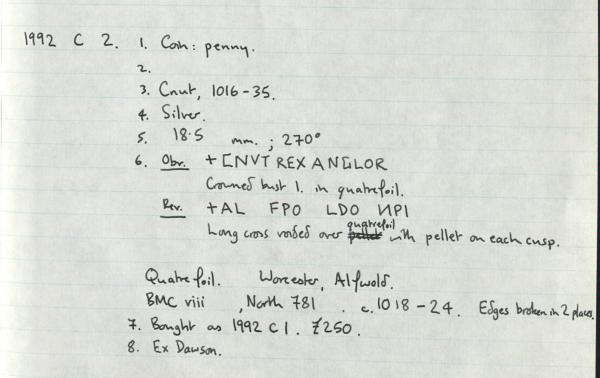 1992 C 2. 1. Coin: penny.
2.
3. Cnut, 1016-35.
4. Silver.
5. 18.5 mm. ; 270°
6. Obv. +CNVT REX ANGLOR
Crowned bust l. in quatrefoil.
Rev. +AL FPO LDO ИPI
Long cross voided over quatrefoil with pellet on each cusp.
Quatrefoil. Worcester, Alfwold.
BMC viii , North 781 . c. 1018-24. Edges broken in 2 places.
7. Bought as 1992 C 1. £250.
8. Ex Dawson.